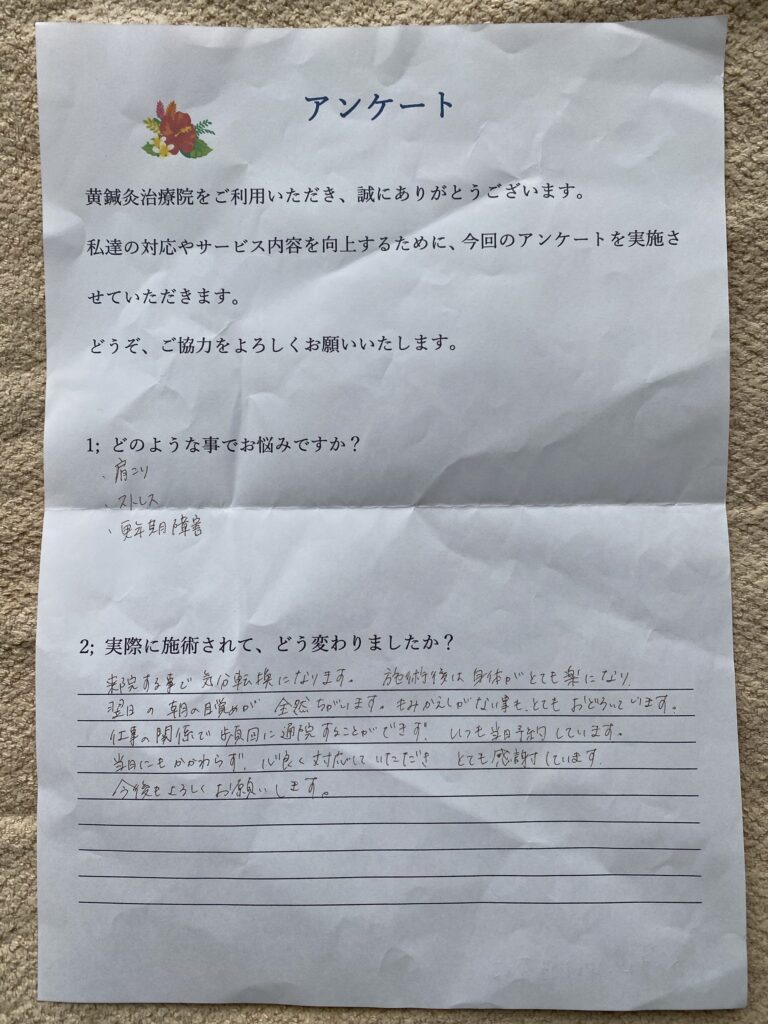 アンケート
黄鍼灸治療院をご利用いただき、誠にありがとうございます。
私達の対応やサービス内容を向上するために、今回のアンケートを実施さ
せていただきます。
どうぞ、ご協力をよろしくお願いいたします。
1; どのような事でお悩みですか？
、肩こり
、ストレス
、更年期障害
2; 実際に施術されて、どう変わりましたか？
来院する事で気分転換になります。 施術後は身体がとても楽になり、
翌日の朝の目覚めが全然ちがいます。もみかえしがない事も、とてもおどろいています。
仕事の関係で 回に通院することができず、いつも当日予約しています。
当日にもかかわらず、心良く対応していただき とても感謝しています。
今後もよろしくお願いします。